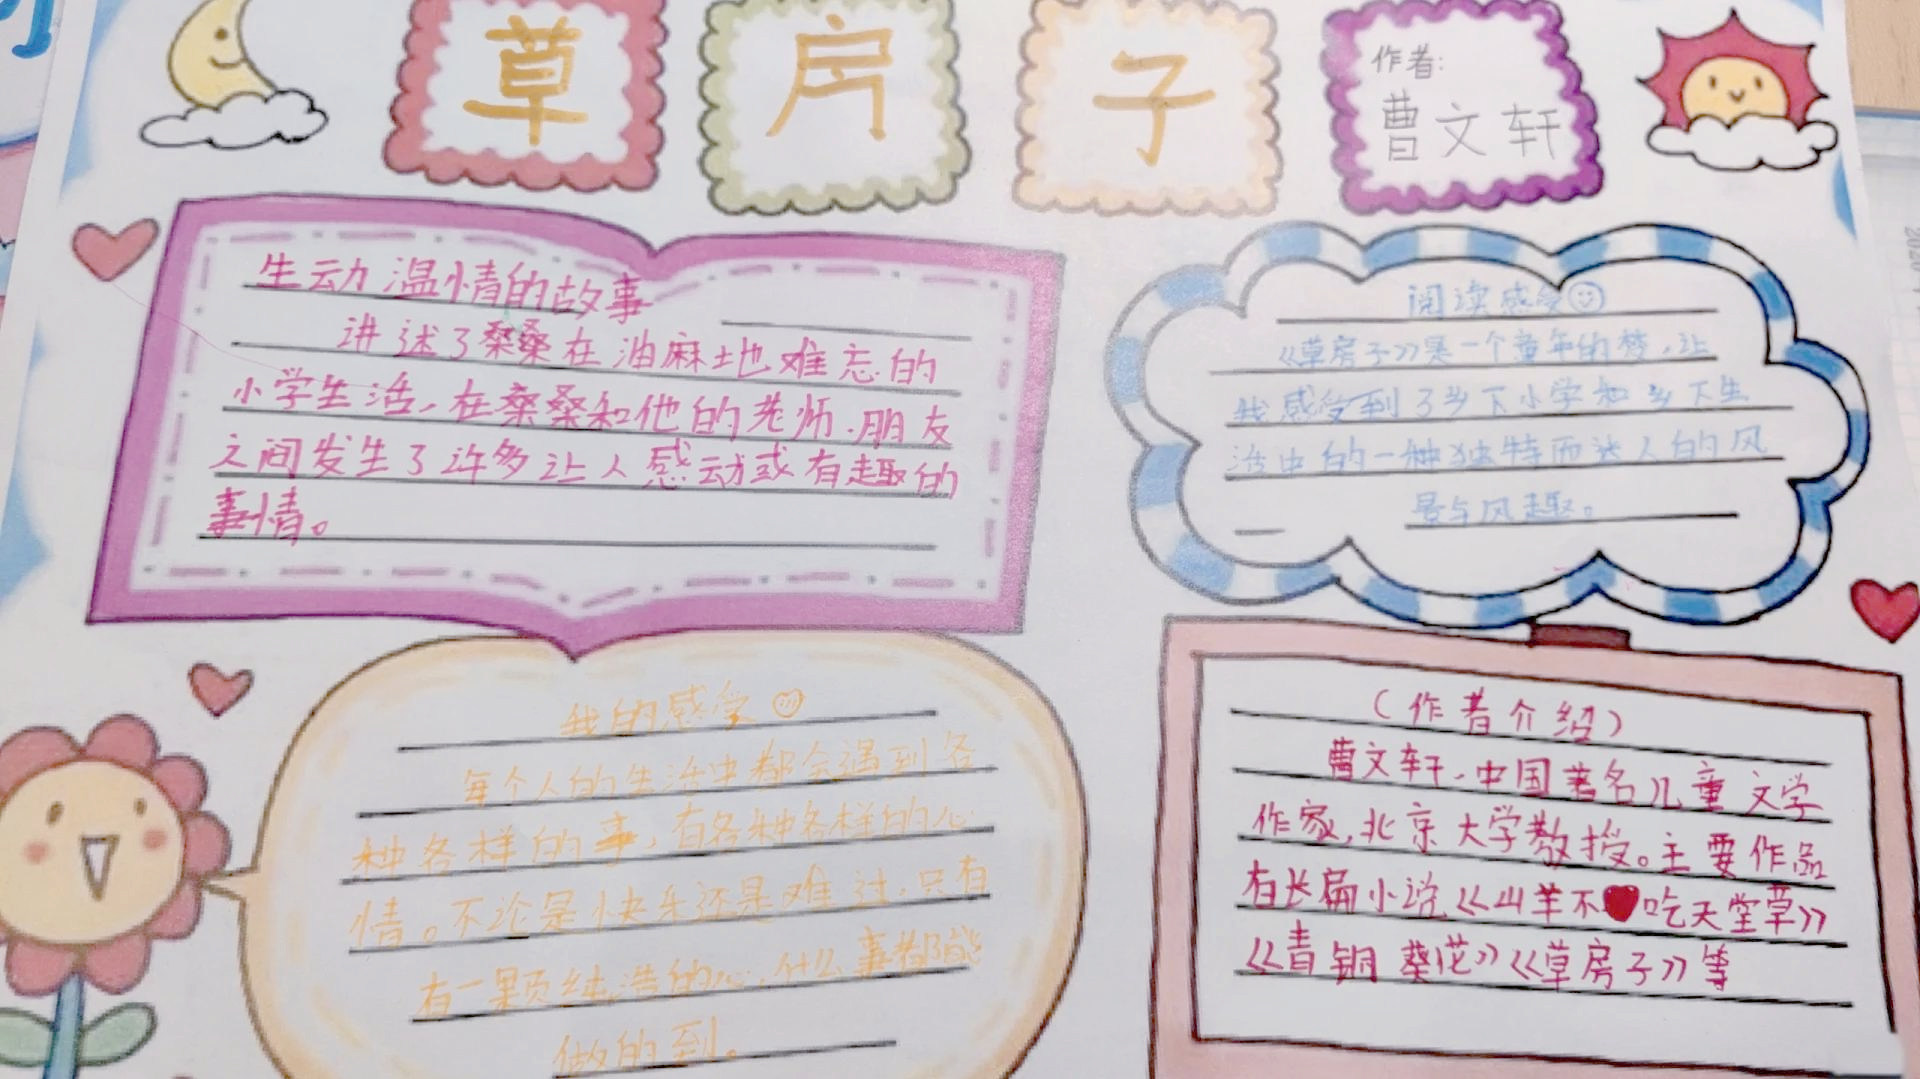 草 房 子
作者:
曹文轩
生动温情的故事
讲述了桑桑在油麻地难忘的
小学生活,在桑桑和他的老师.朋友
之间发生了许多让人感动或有趣的
事情。
阅读感受
《草房子》是一个童年的梦,让
我感受到了乡下小学和乡下生
活中的一种独特而迷人的风
景与风趣。
我的感受
每个人的生活中都会遇到各
种各样的事,有各种各样的心
情。不论是快乐还是难过,只有
有一颗纯洁的心,什么事都能
做的到。
(作者介绍)
曹文轩,中国著名儿童文学
作家,北京大学教授。主要作品
有长篇小说《山羊不吃天堂草》
《青铜葵花》《草房子》等